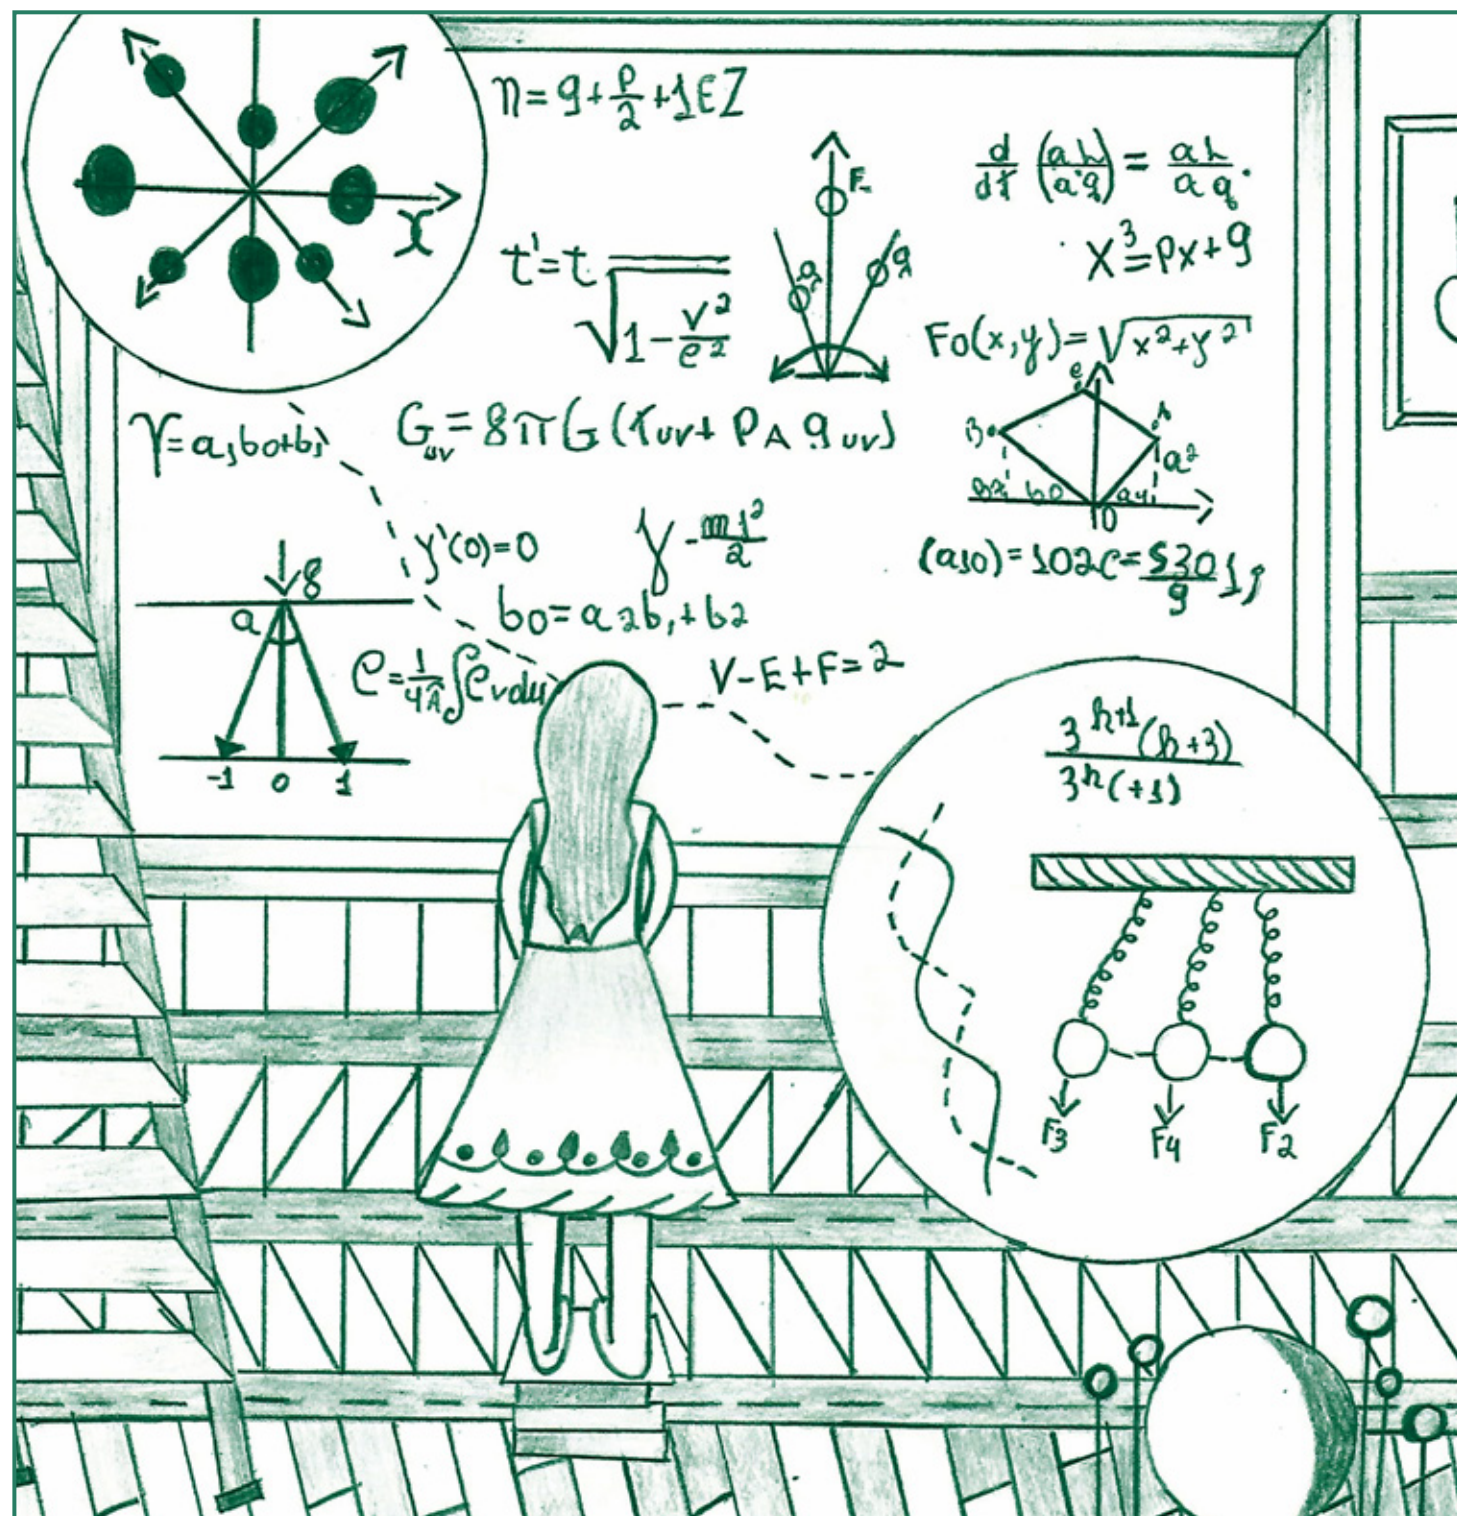 x
η=9+P/2+1EZ
F
g g
d/dt (ah/a'q) = ah/aq.
x³=px+9
t'=t √1-v²/c²
Fo(x,y)=√x²+y²
γ=a,bo+b,
Guv=8πG(Tuv+PA guv)
e
B A
a²
bo a4
0
y'(0)=0
γ-m1²/2
(a10)=102c=530/9 1j
8
a
bo=a2b,+b2
e=1/4π∫evdu
V-E+F=2
-1 0 1
3ʰ⁺¹(h+3)/3ʰ(+1)
F3 F4 F2